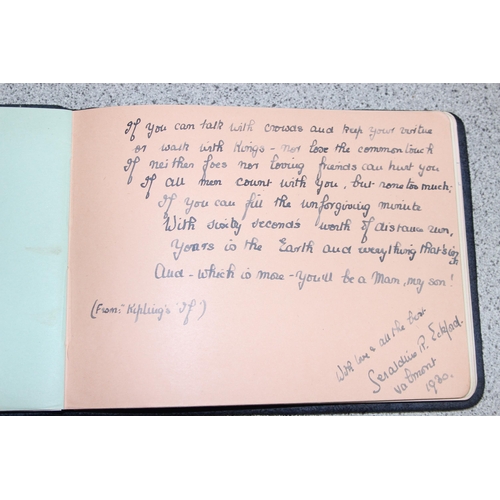 If you can talk with crowds and keep your virtue
or walk with Kings - nor lose the common touch
If neither foes nor loving friends can hurt you
If all men count with you, but none too much;
If you can fill the unforgiving minute
With sixty seconds worth of distance run,
Yours is the Earth and everything that's in it
And - which is more - You'll be a Man, my son!
(From: "Kipling's 'If')
With love & all the best
Geraldine R. Eckford.
Valmont
1930.